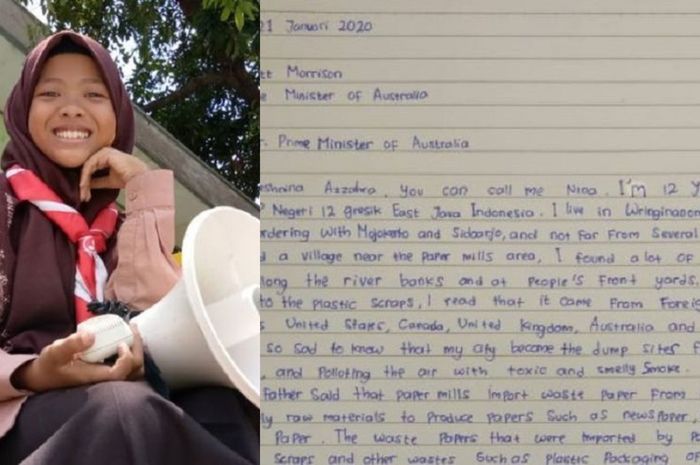 21 Januari 2020
Morrison
Minister of Australia
Prime Minister of Australia
Azzahra. You can call me Nina. I'm 12 Y
Negeri 12 gresik East Java Indonesia. I live in Wringinano
rdering With Mojokerto and Sidoarjo, and not far from Several
d a village near the paper mills area, I found a lot of
long the river banks and at people's front yards.
to the plastic scraps, I read that it came from Forei
s United States, Canada, United kingdom, Australia and
so sad to know that my city become the dump sites F
, and Polloting the air with toxic and smelly smoke.
Father Said that paper mills import waste paper From
ly raw materials to Produce papers Such as newspaper,
Paper. The waste Papers that were imported by p
Scraps and other wastes Such as Plastic Packaging of